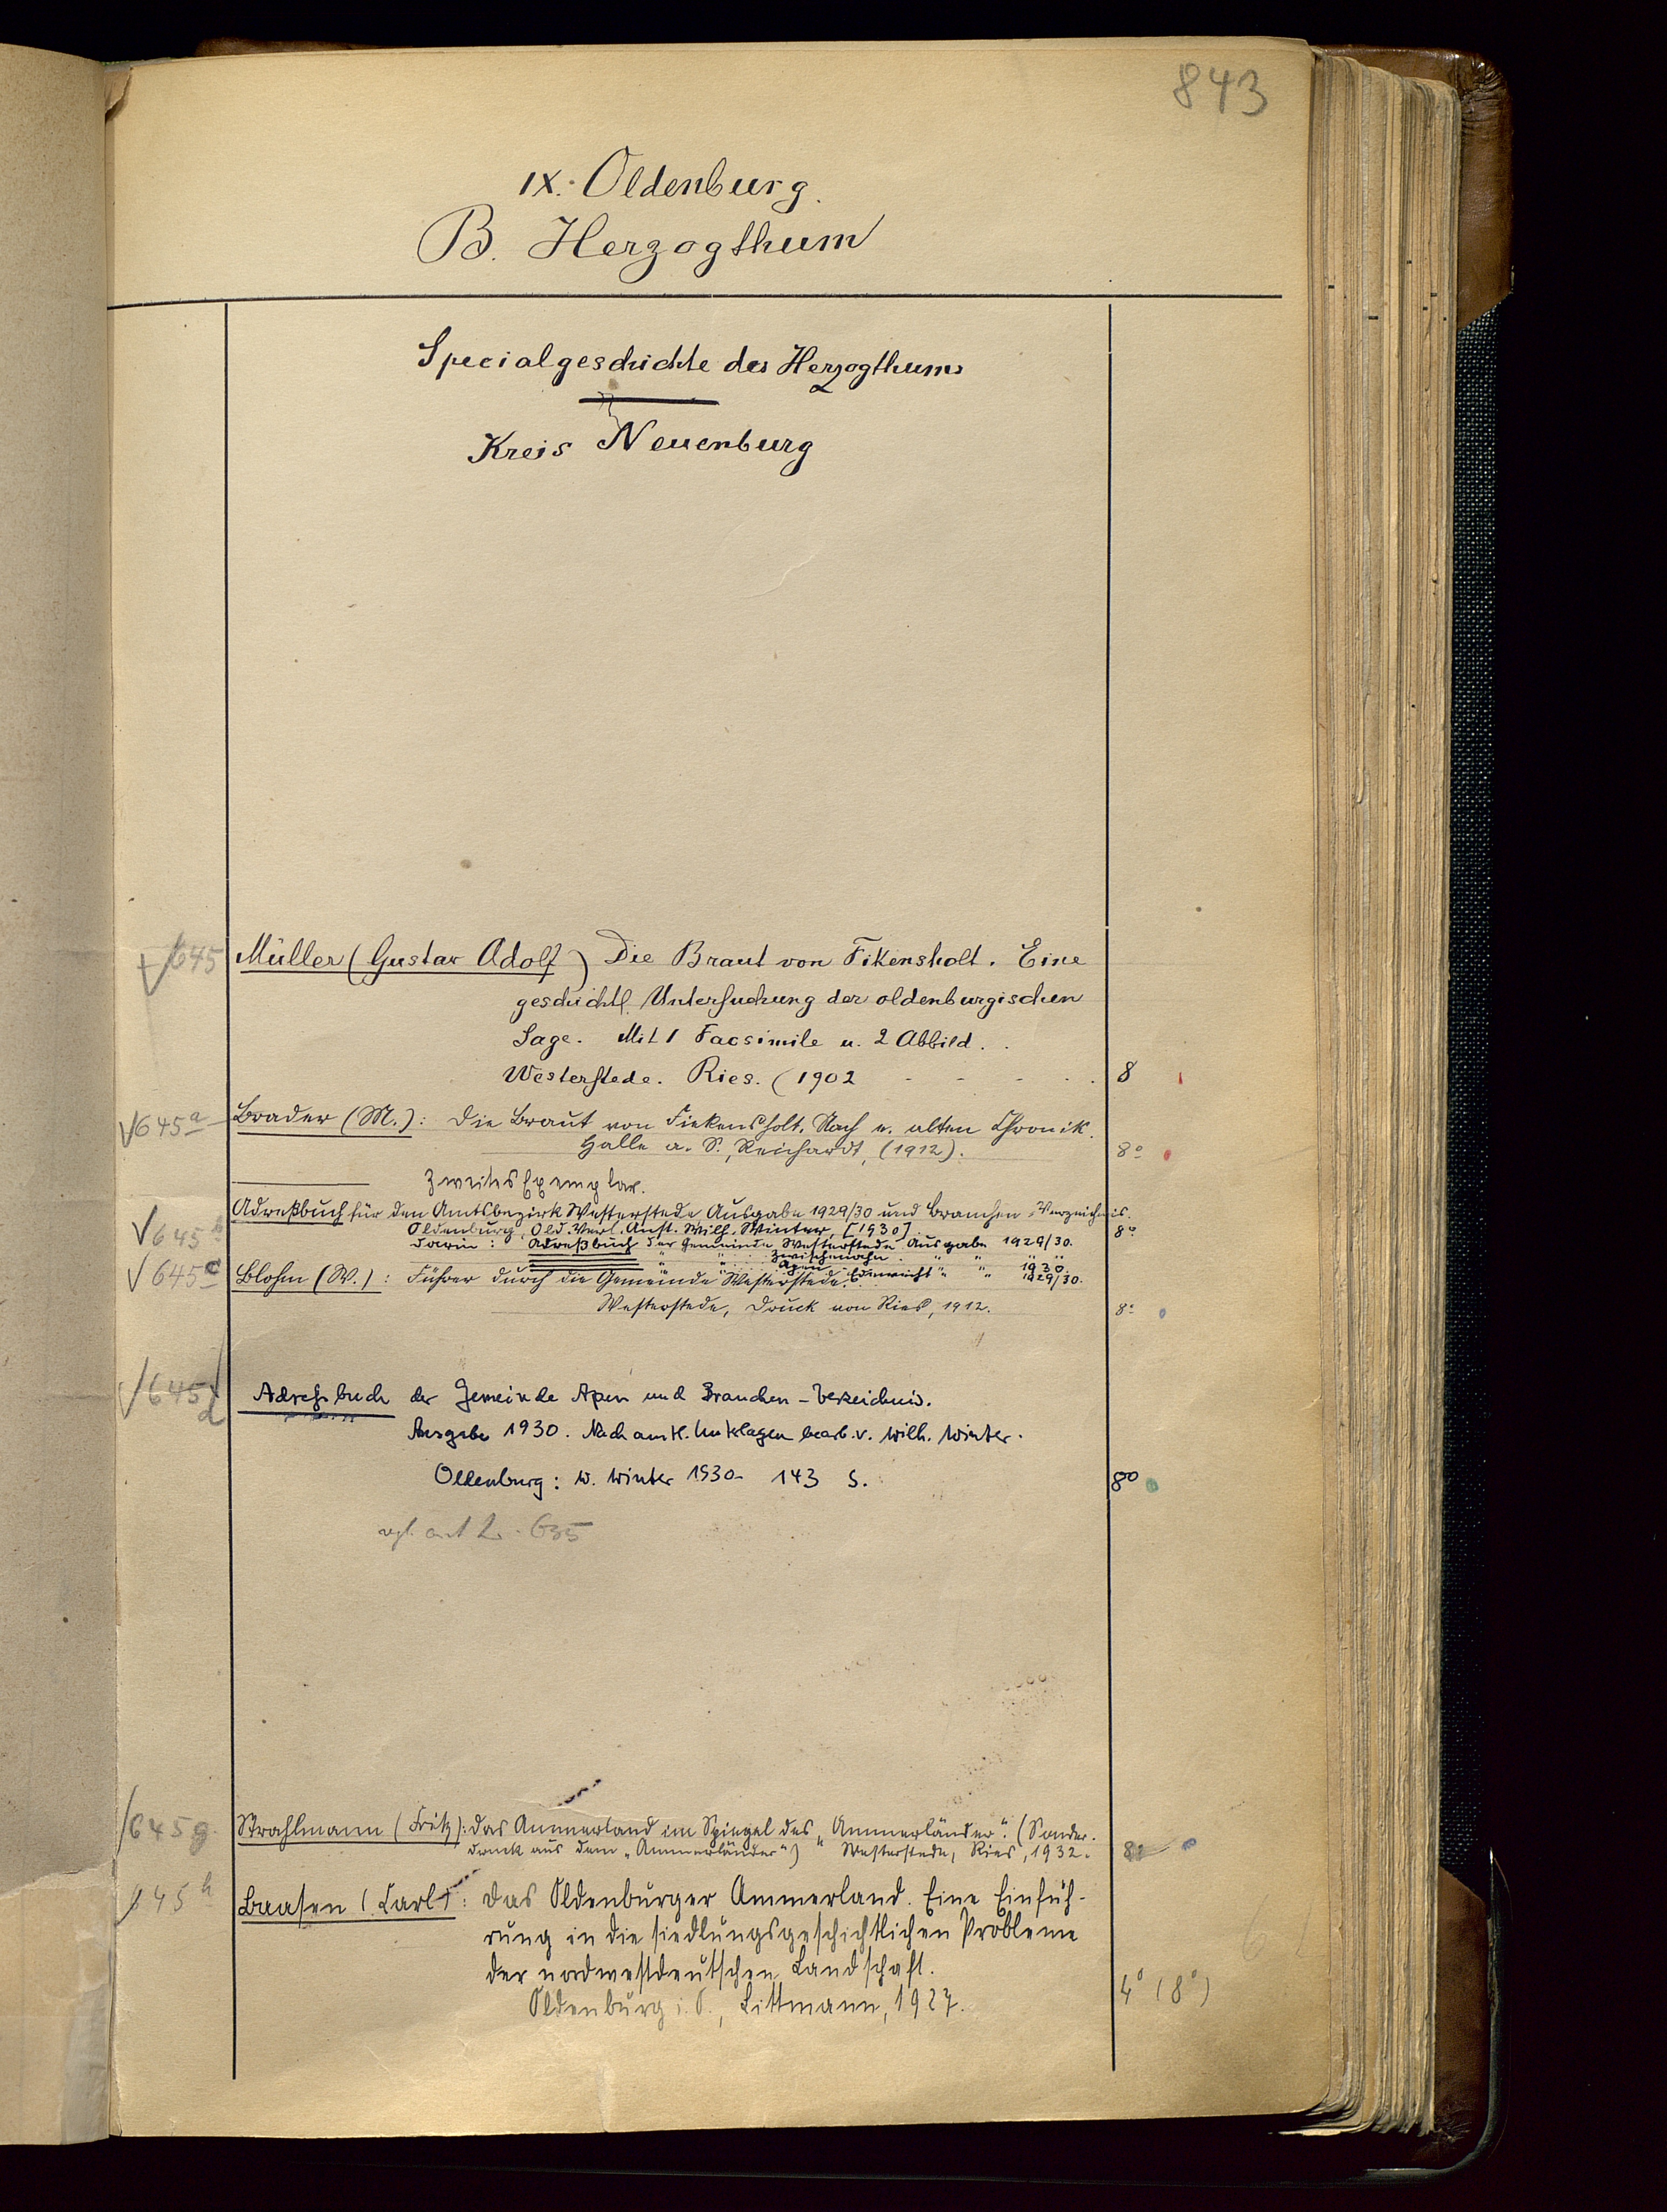 843
IX. Oldenburg.
B. Herzogthum
Specialgeschichte des Herzogthums
Kreis Neuenburg
645 Müller (Gustav Adolf) Die Braut von Fikensholt. Eine
geschichtl. Untersuchung der oldenburgischen
Sage. Mit 1 Facsimile u. 2 Abbild.
Westerstede. Ries. (1902 - - - . 8
645a Brader (M.): Die Braut von Fiekensholt. Nach e. alten Chronik.
Halle a. S., Reichardt, (1912). 8°
Zweites Exemplar.
645b Adreßbuch für den Amtsbezirk Westerstede Ausgabe 1929/30 und Branchen-Verzeichnis.
Oldenburg, Old. Verl. Anst. Wilh. Winter, [1930]. 8°
Darin: Adreßbuch der Gemeinde Westerstede Ausgabe 1929/30.
" " Zwischenahn " "
" " Apen " " 1930.
" " Edewecht " " 1929/30.
645c Blohm (W.): Führer durch die Gemeinde Westerstede.
Westerstede, Druck von Ries, 1912. 8°
645d Adreßbuch der Gemeinde Apen und Branchen-Verzeichnis.
Ausgabe 1930. Nach amtl. Unterlagen bearb. v. Wilh. Winter.
Oldenburg: W. Winter 1930. 143 S. 8°
635
645g Strahlmann (Fritz): Das Ammerland im Spiegel des „Ammerländer". (Sonder-
druck aus dem „Ammerländer") Westerstede, Ries, 1932. 8°
645h Baasen (Carl): Das Oldenburger Ammerland. Eine Einfüh-
rung in die siedlungsgeschichtlichen Probleme
der nordwestdeutschen Landschaft.
Oldenburg i. O., Littmann, 1927. 4° (8°)